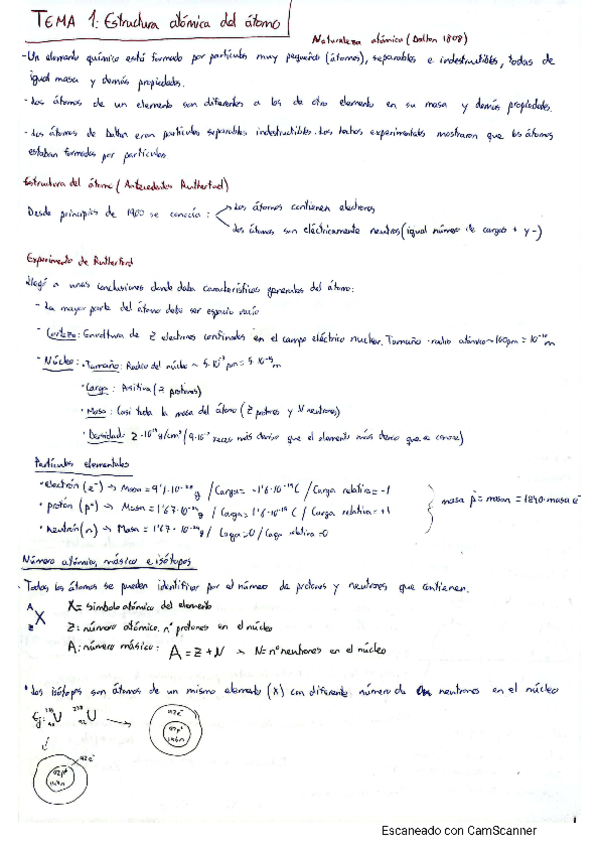 TEMA 1: Estructura atómica del átomo
Naturaleza atómica (Dalton 1808)
-Un elemento químico está formado por partículas muy pequeñas (átomos), separables e indestructibles, todas de
igual masa y demás propiedades.
-Los átomos de un elemento son diferentes a los de otro elemento en su masa y demás propiedades.
-Los átomos de Dalton eran partículas separables indestructibles. Los hechos experimentales mostraron que los átomos
estaban formados por partículas.
Estructura del átomo (Antecedentes Rutherford)
Desde principios de 1900 se conocía:
Los átomos contienen electrones
los átomos son eléctricamente neutros (igual número de cargas + y -)
Experimento de Rutherford
llegó a unas conclusiones donde daba características generales del átomo:
- La mayor parte del átomo debe ser espacio vacío
- Corteza: Envoltura de Z electrones confinados en el campo eléctrico nuclear. Tamaño radio atómico ~100pm = 10⁻¹⁰ m
- Núcleo: · Tamaño: Radio del núcleo ~ 5·10⁻³ pm = 5·10⁻¹⁵ m
· Carga: Positiva (Z protones)
· Masa: Casi toda la masa del átomo (Z protones y N neutrones)
· Densidad: veces más denso que el elemento más denso que se conoce)
Partículas elementales
· electrón (e⁻) → Masa = 9'1·10⁻²⁸ g / Carga = -1'6·10⁻¹⁹ C / Carga relativa = -1
· protón (p⁺) → Masa = 1'67·10⁻²⁴ g / Carga = 1'6·10⁻¹⁹ C / Carga relativa = +1
· Neutrón (n) → Masa = 1'67·10⁻²⁴ g / Carga = 0 / Carga relativa = 0
masa p = masa n = 1840·masa e⁻
Número atómico, másico e isótopos
· Todos los átomos se pueden identificar por el número de protones y neutrones que contienen.
A
Z X
X = símbolo atómico del elemento
Z: número atómico. nº protones en el núcleo
A: número másico: A = Z + N → N = nº neutrones en el núcleo
· Los isótopos son átomos de un mismo elemento (X) con diferente número de neutrones en el núcleo
Ej: U U
92e⁻
92p⁺
92e⁻
92p⁺
Escaneado con CamScanner